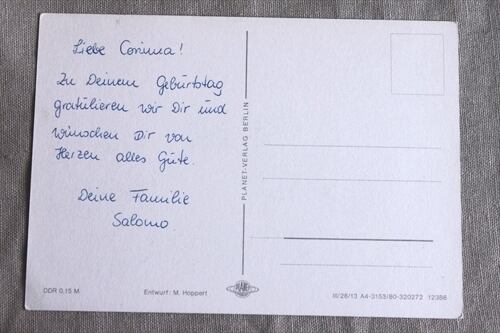 Liebe Corinna!
Zu Deinem Geburtstag
gratulieren wir Dir und
wünschen Dir von
Herzen alles Gute.
Deine Familie
Salomo
DDR 0,15 M
Entwurf: M. Hoppert
PLANET-VERLAG BERLIN
PLANET
III/26/13 A4-3153/80-320272 12386